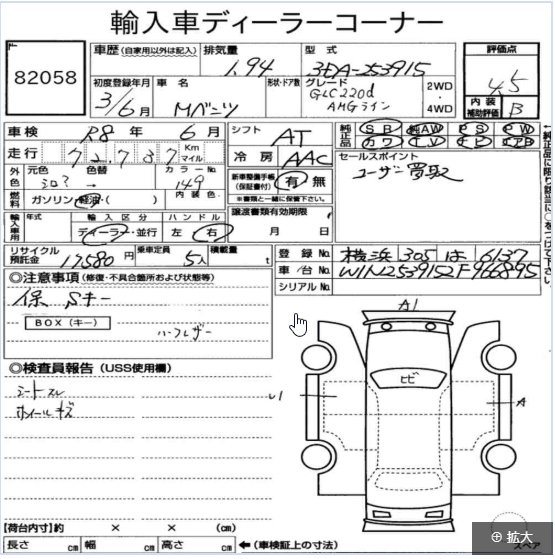 輸入車ディーラーコーナー
82058
車歴 (自家用以外は記入)
排気量
1.94
型式
3DA-253915
評価点
4.5
初度登録年月
3/6月
車名
Mベンツ
形状・ドア数
グレード
GLC220d
AMGライン
2WD
4WD
内装
補助評価
B
車検
R8年 6月
シフト
AT
純正品
SR 純AW PS PW
カワ TV ナビ エアB
走行
7 2 7 3 7
Km
マイル
冷房
AAC
セールスポイント
ユーザー買取
外色
元色
シロ?
色替
→
カラーNo.
149
新車整備手帳
(保証書付)
有・無
※書類と一緒に保管下さい。
燃料
ガソリン・軽油・( )
内装色.
譲渡書類有効期限
月 日
輸入車用
年式
輸入区分
ディーラー・並行
ハンドル
左・右
リサイクル
預託金
17580円
乗車定員
5人
積載量
t
登録No.
横浜 305 は 6137
車/台No.
W1N2539152F966895
シリアルNo.
◎注意事項(修復・不具合箇所および状態等)
保 Sキー
BOX(キー)
ハーフレザー
◎検査員報告(USS使用欄)
シートスレ
ホイールキズ
A1
ヒビ
U1
A
スペア
【荷台内寸】約 × × (cm)
長さ cm 幅 cm 高さ cm
←(車検証上の寸法)
拡大